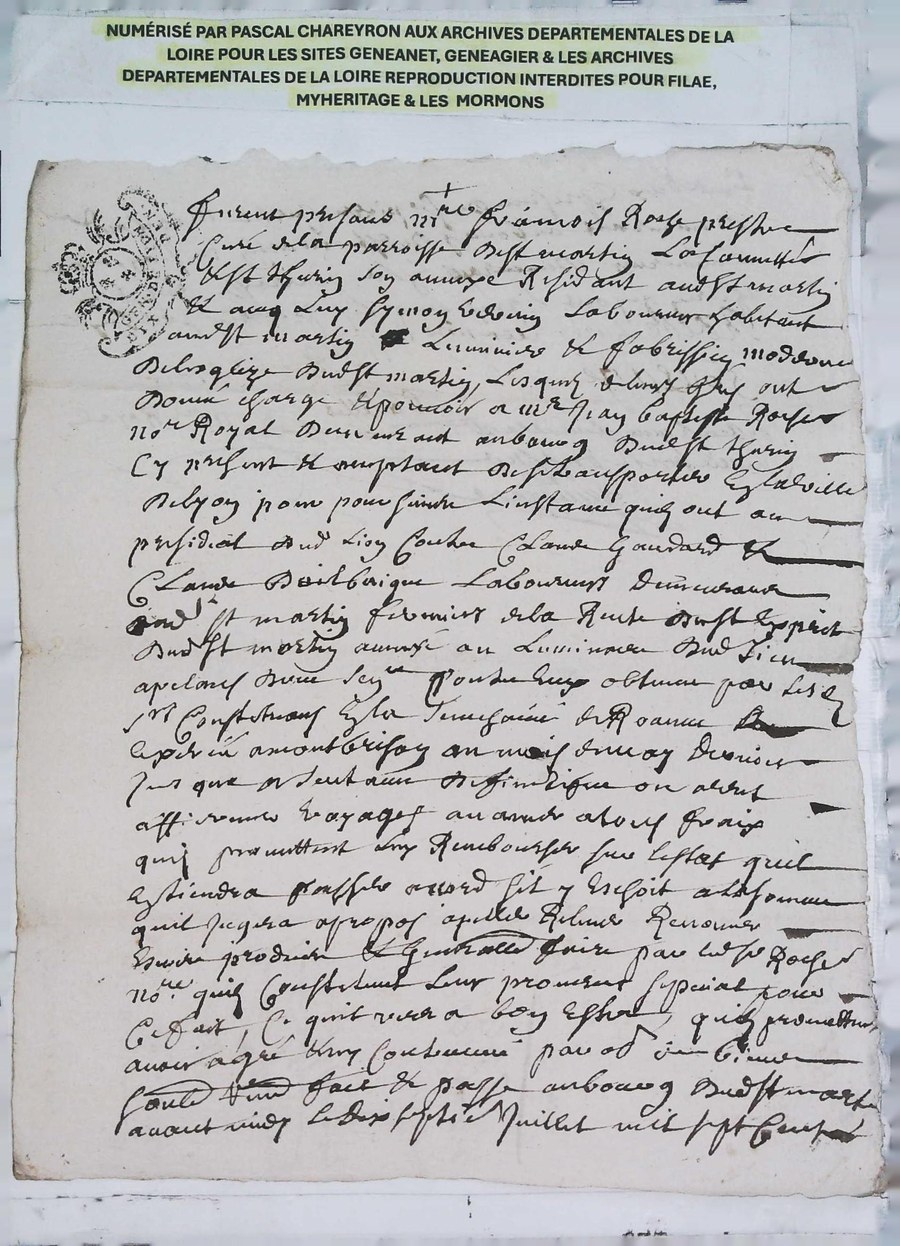 NUMÉRISÉ PAR PASCAL CHAREYRON AUX ARCHIVES DEPARTEMENTALES DE LA
LOIRE POUR LES SITES GENEANET, GENEAGIER & LES ARCHIVES
DEPARTEMENTALES DE LA LOIRE REPRODUCTION INTERDITES POUR FILAE,
MYHERITAGE & LES MORMONS
furent presans mre francois Roche prestre
Curé de la parroisse de st martin La sauvetté
& st thurin son annexe Residant aud st martin
& avecq Luy symon Laboureur habitant
aud st martin Luminier & fabrissien moderne
De leglize dud st martin, Lesquels de leurs grés ont
Donné charge & pouvoir a mre Jean baptiste Roche
nore Royal Demeurant au bourg dud st thurin
Cy present & acceptant de se transporter En la ville
De lyon pour poursuivre Linstance quils ont au
presidial dud Lion Contre Claude Goudard &
Claude Laboureurs demeurants
aud st martin fermiers de la Rente du st Esprit
dud st martin annexé au Luminaire dud Lieu
apelants dune sence Contre Eux obtenue par les d
srs Constituants En la senechaucé de Roanne
a montbrison au mois de may dernier
Jusqua sentance definitifve ou arrest
affirmer voyages avancer a tous fraix
quils promettent Luy Rembourser sur lestat quil
En tiendra passer accord sil y Eschoit a la somme
quil Jugera apropos apeller Relever Renoncer
Escrire produire & Generallement faire par led sr Roche
nore quils Constituent Leur procureur special pour
Ce fait, Ce quil verra bon Estre, quils promettent
avoir agré & au Contenu par obon de biens
soubmons Renons fait & passé au bourg dud st martin
avant midy le dix septie Juillet mil sept Cent